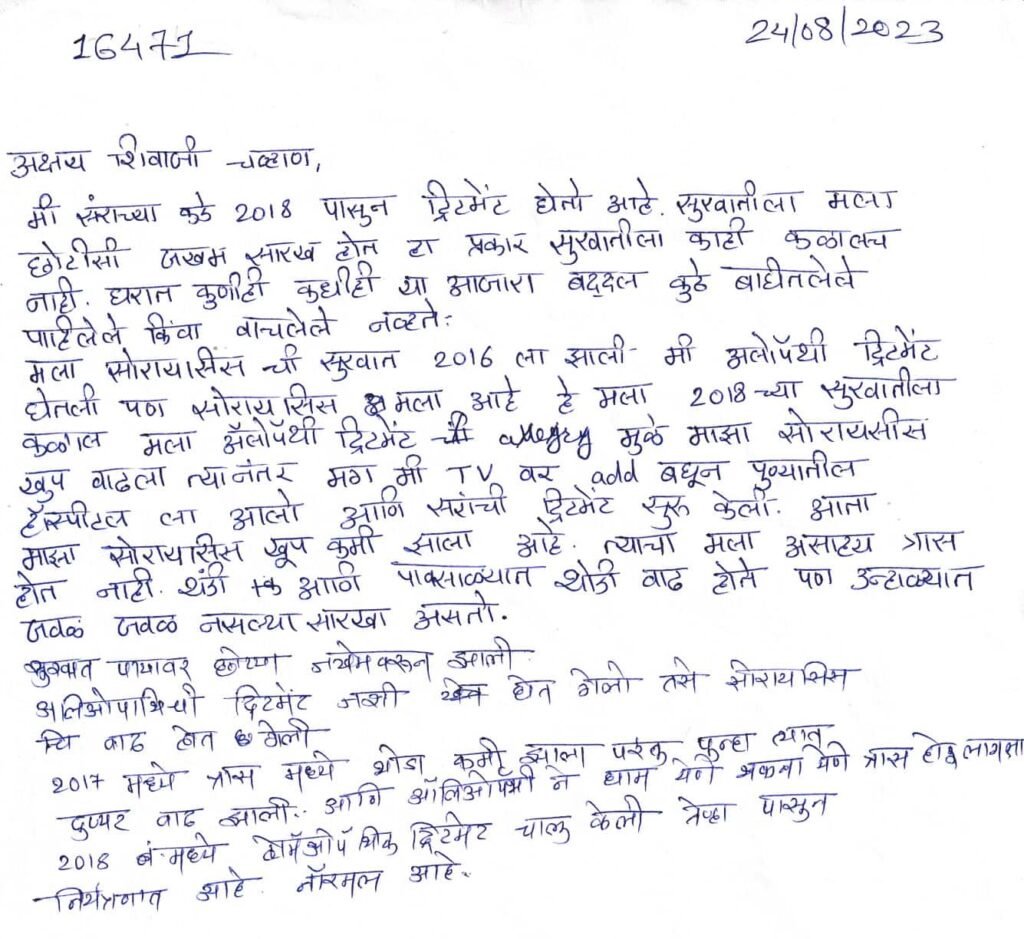 16471
24/08/2023
अक्षय शिवाजी चव्हाण,
मी संराच्या कडे 2018 पासुन ट्रिटमेंट घेतो आहे. सुरवातीला मला
छोटीसी जखम सारख होत हा प्रकार सुरवातीला काही कळालच
नाही. घरात कुणीही कधीही या आजारा बद्दल कुठे बाघीतलेले
पाहिलेले किंवा वाचलेले नव्हते:
मला सोरायासीस ची सुरवात 2016 ला झाली- मी अलोपॅथी ट्रिटमेंट
घेतली पण सोरायसिस मला आहे हे मला 2018-च्या सुरवातीला
कळाल मला ॲलोपॅथी ट्रिटमेंट ची allergy मुळे माझा सोरायसीस
खुप वाढला त्यानंतर मग मी TV वर add बघून पुण्यातील
हॅास्पीटल ला आलो आणि सरांची ट्रिटमेंट सुरु केली. आता
माझा सोरायासिस खूप कमी झाला आहे. त्याचा मला असाह्य त्रास
होत नाही. थंडी आणि पावसाळ्यात थोडी वाढ होते पण उन्हाळ्यात
जवळ जवळ नसल्या सारखा असतो.
सुरवात पायावर छोट्या जखेम करून झाली.
अलिओपाथिची ट्रिटमेंट जशी घेत गेलो तसे सोरायसिस
चि वाढ होत गेली
2017 मध्ये त्रास मध्ये थोडा कमी झाला परंतु पुन्हा त्यात
दुप्पट वाढ झाली.. आणि ऑलिओपॅथी ने घाम येणे थकवा येणे त्रास होवु लागला
2018 मध्ये होमॅओपॅथिक ट्रिटमेंट चालु केली तेव्हा पासुन
नियंत्रणात आहे. नॉरमल आहे.